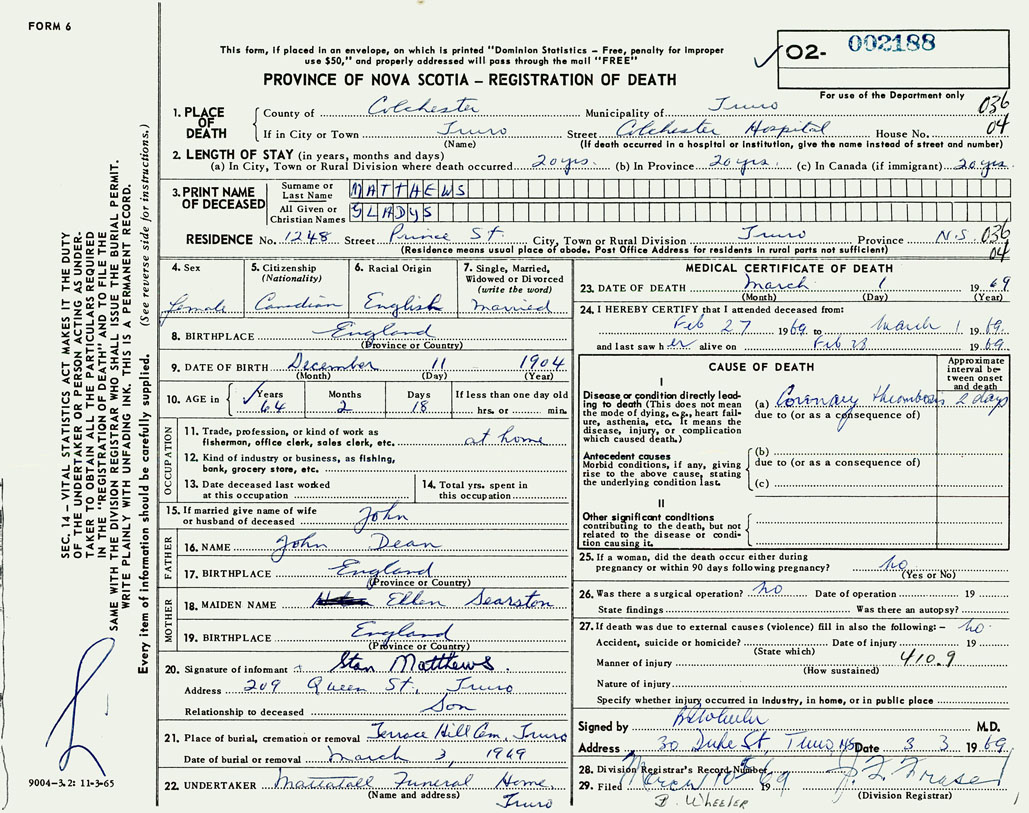 FORM 6
This form, if placed in an envelope, on which is printed "Dominion Statistics – Free, penalty for improper
use $50," and properly addressed will pass through the mail "FREE"
O2- 002188
PROVINCE OF NOVA SCOTIA – REGISTRATION OF DEATH
For use of the Department only
1. PLACE OF DEATH
County of Colchester Municipality of Truro 036
If in City or Town Truro Street Colchester Hospital House No. 04
(Name) (If death occurred in a hospital or institution, give the name instead of street and number)
2. LENGTH OF STAY (in years, months and days)
(a) In City, Town or Rural Division where death occurred 20 yrs. (b) In Province 20 yrs. (c) In Canada (if immigrant) 20 yrs.
3. PRINT NAME OF DECEASED
Surname or Last Name MATTHEWS
All Given or Christian Names GLADYS
RESIDENCE No. 1248 Street Prince St. City, Town or Rural Division Truro Province N.S. 036
(Residence means usual place of abode. Post Office Address for residents in rural parts not sufficient) 04
4. Sex female
5. Citizenship (Nationality) Canadian
6. Racial Origin English
7. Single, Married, Widowed or Divorced (write the word) married
8. BIRTHPLACE England
(Province or Country)
9. DATE OF BIRTH December 11 1904
(Month) (Day) (Year)
10. AGE in Years 64 Months 2 Days 18 If less than one day old hrs. or min.
OCCUPATION
11. Trade, profession, or kind of work as
fisherman, office clerk, sales clerk, etc. at home
12. Kind of industry or business, as fishing,
bank, grocery store, etc.
13. Date deceased last worked
at this occupation
14. Total yrs. spent in
this occupation
15. If married give name of wife
or husband of deceased John
FATHER
16. NAME John Dean
17. BIRTHPLACE England
(Province or Country)
MOTHER
18. MAIDEN NAME Ellen Searston
19. BIRTHPLACE England
(Province or Country)
20. Signature of informant Stan Matthews.
Address 209 Queen St., Truro
Relationship to deceased Son
21. Place of burial, cremation or removal Terrace Hill Cem, Truro
Date of burial or removal March 3, 1969
22. UNDERTAKER Mattatall Funeral Home,
(Name and address) Truro
MEDICAL CERTIFICATE OF DEATH
23. DATE OF DEATH March 1 1969
(Month) (Day) (Year)
24. I HEREBY CERTIFY that I attended deceased from:
Feb 27 1969 to March 1 1969
and last saw her alive on Feb 28 1969
CAUSE OF DEATH
Approximate interval between onset and death
I
Disease or condition directly lead-
ing to death (This does not mean
the mode of dying, e.g., heart fail-
ure, asthenia, etc. It means the
disease, injury, or complication
which caused death.)
(a) Coronary thrombosis 2 days
due to (or as a consequence of)
Antecedent causes
Morbid conditions, if any, giving
rise to the above cause, stating
the underlying condition last.
(b)
due to (or as a consequence of)
(c)
II
Other significant conditions
contributing to the death, but not
related to the disease or condi-
tion causing it.
25. If a woman, did the death occur either during
pregnancy or within 90 days following pregnancy? no
(Yes or No)
26. Was there a surgical operation? no Date of operation 19
State findings Was there an autopsy?
27. If death was due to external causes (violence) fill in also the following:– no
Accident, suicide or homicide? Date of injury 19
(State which)
Manner of injury 410.9
(How sustained)
Nature of injury
Specify whether injury occurred in industry, in home, or in public place
Signed by B Wheeler M.D.
Address 30 Duke St, Truro NS Date 3 3 1969
28. Division Registrar's Record Number
29. Filed March 10 1969
(Division Registrar)
B. WHEELER
SEC. 14 – VITAL STATISTICS ACT MAKES IT THE DUTY
OF THE UNDERTAKER OR PERSON ACTING AS UNDER-
TAKER TO OBTAIN ALL THE PARTICULARS REQUIRED
IN THE "REGISTRATION OF DEATH" AND TO FILE THE
SAME WITH THE DIVISION REGISTRAR WHO SHALL ISSUE THE BURIAL PERMIT.
WRITE PLAINLY WITH UNFADING INK. THIS IS A PERMANENT RECORD.
Every item of information should be carefully supplied. (See reverse side for instructions.)
9004-3.2: 11-3-65